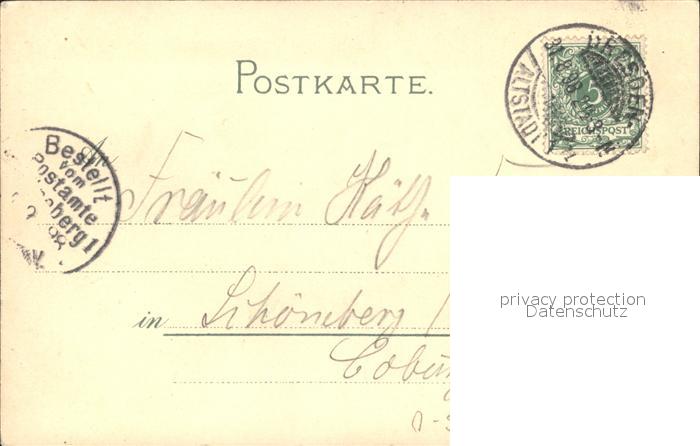 POSTKARTE.
DRESDEN-
ALTSTADT
REICHSPOST
Bestellt
vom
Postamte
berg 1
98
An
Fräulein Käth
in Schöneberg
Cobur
privacy protection
Datenschutz